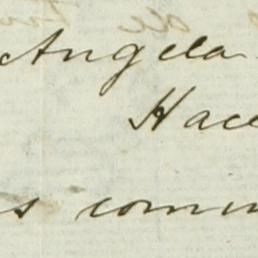 Angela
Hace
s comun